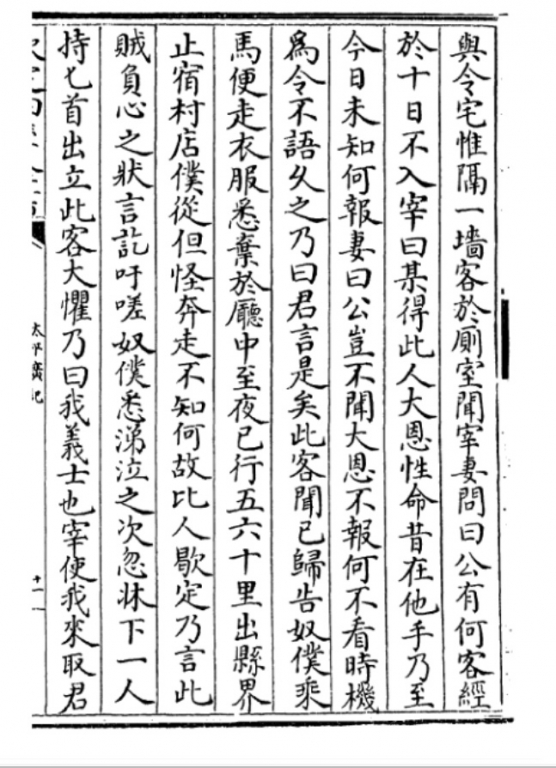 與令宅惟隔一墻客於廁室聞宰妻問曰公有何客經
於十日不入宰曰某得此人大恩性命昔在他手乃至
今日未知何報妻曰公豈不聞大恩不報何不看時機
爲令不語久之乃曰君言是矣此客聞已歸告奴僕乘
馬便走衣服悉棄於廳中至夜已行五六十里出縣界
止宿村店僕從但怪奔走不知何故比人歇定乃言此
賊負心之狀言訖吁嗟奴僕悉涕泣之次忽牀下一人
持匕首出立此客大懼乃曰我義士也宰使我來取君
太平廣記